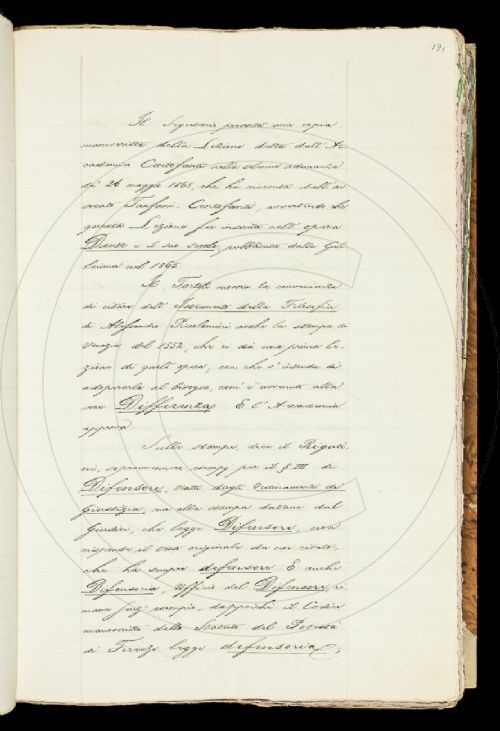 191
Il Segretario presenta una copia
manoscritta della Lezione detta dall'Ac-
cademico Centofanti nella solenne adunanza
de' 24 maggio 1865, che ha ricevuta dall'av-
vocato Tanfani-Centofanti, avvertendo che
questa Lezione fu inserita nell'opera
Dante e il suo secolo, pubblicata dalla Gali-
leiana nel 1865.
Il Tortoli mostra la convenienza
di citare dell'Istrumento della Filosofia
di Alessandro Piccolomini anche la stampa di
Venezia del 1552, che ci dà una prima le-
zione di quell'opera, con che s'intenda di
adoperarla al bisogno, com'è avvenuto alla
voce Differenza. E l'Accademia
approva.
Sulle stampe, dice il Riguti-
ni, sopravvenne esempj per il § III di
Difensore, tratti dagli Ordinamenti di
Giustizia, ma alla stampa datane dal
Giudici, che legge Difensore, non
risponde il testo originale da noi citato,
che ha sempre defensore. E anche
Difensoria, Ufficio del Difensore, ri-
mane senz'esempio, dappoichè il Codice
manoscritto dello Statuto del Potestà
di Firenze legge defensoria;